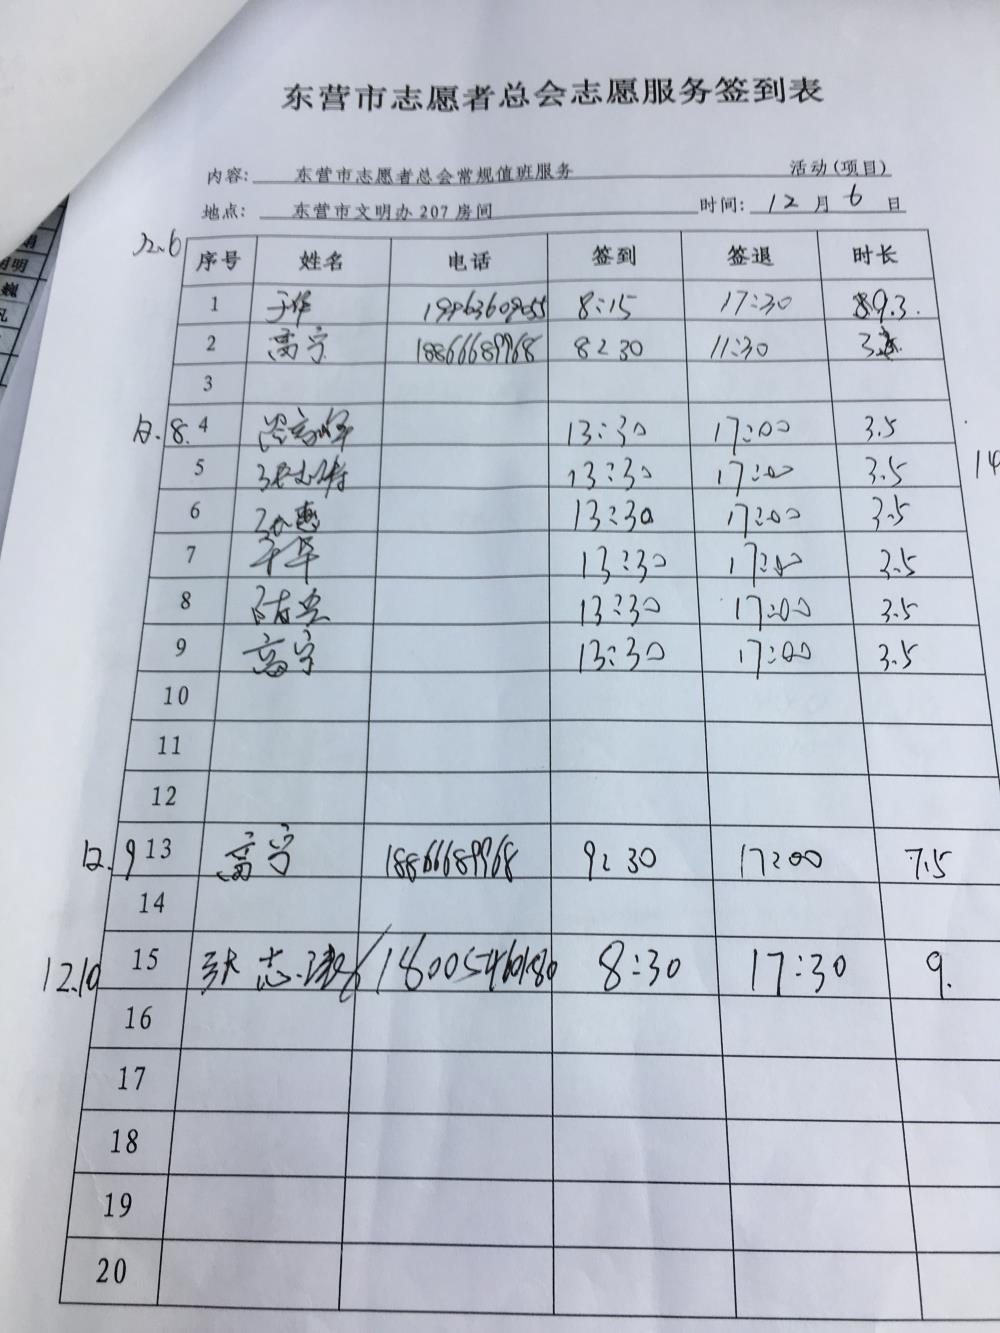 东营市志愿者总会志愿服务签到表
内容: 东营市志愿者总会常规值班服务 活动(项目)
地点: 东营市文明办 207 房间 时间: 12 月 6 日
12.6
序号 姓名 电话 签到 签退 时长
1 于华 8:15 17:30 9.3.
2 高宇 18866689968 8:30 11:30 3
3
12.8. 4 13:30 17:00 3.5
5 13:30 17:00 3.5
14
6 13:30 17:00 3.5
7 于华 13:30 17:00 3.5
8 13:30 17:00 3.5
9 高宇 13:30 17:00 3.5
10
11
12
12.9 13 高宇 18866689968 9:30 17:00 7.5
14
12.10 15 张志 18005460180 8:30 17:30 9.
16
17
18
19
20
明
巍